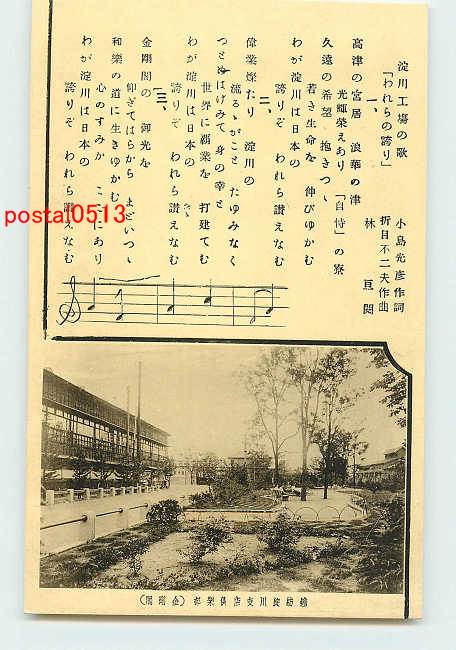 淀川工場の歌
「われらの誇り」
小島光彦作詞
折目不二夫作曲
林亘閲
一、
高津の宮居 浪華の津
光輝栄えあり 「自恃」の寮
久遠の希望 抱きつゝ
若き生命を 伸びゆかむ
わが淀川は日本の
誇りぞ われら讃えなむ
二、
偉業燦たり 淀川の
流るゝがごと たゆみなく
つとめはげみて身の幸と
世界に覇業を 打建てむ
わが淀川は日本の
誇りぞ われら讃えなむ
三、
金剛閣の 御光を
仰ぎてはらから まどいつゝ
和楽の道に生きゆかむ
心のすみか こゝにあり
わが淀川は日本の
誇りぞ われら讃えなむ
postal0513
淀川支店倶楽部